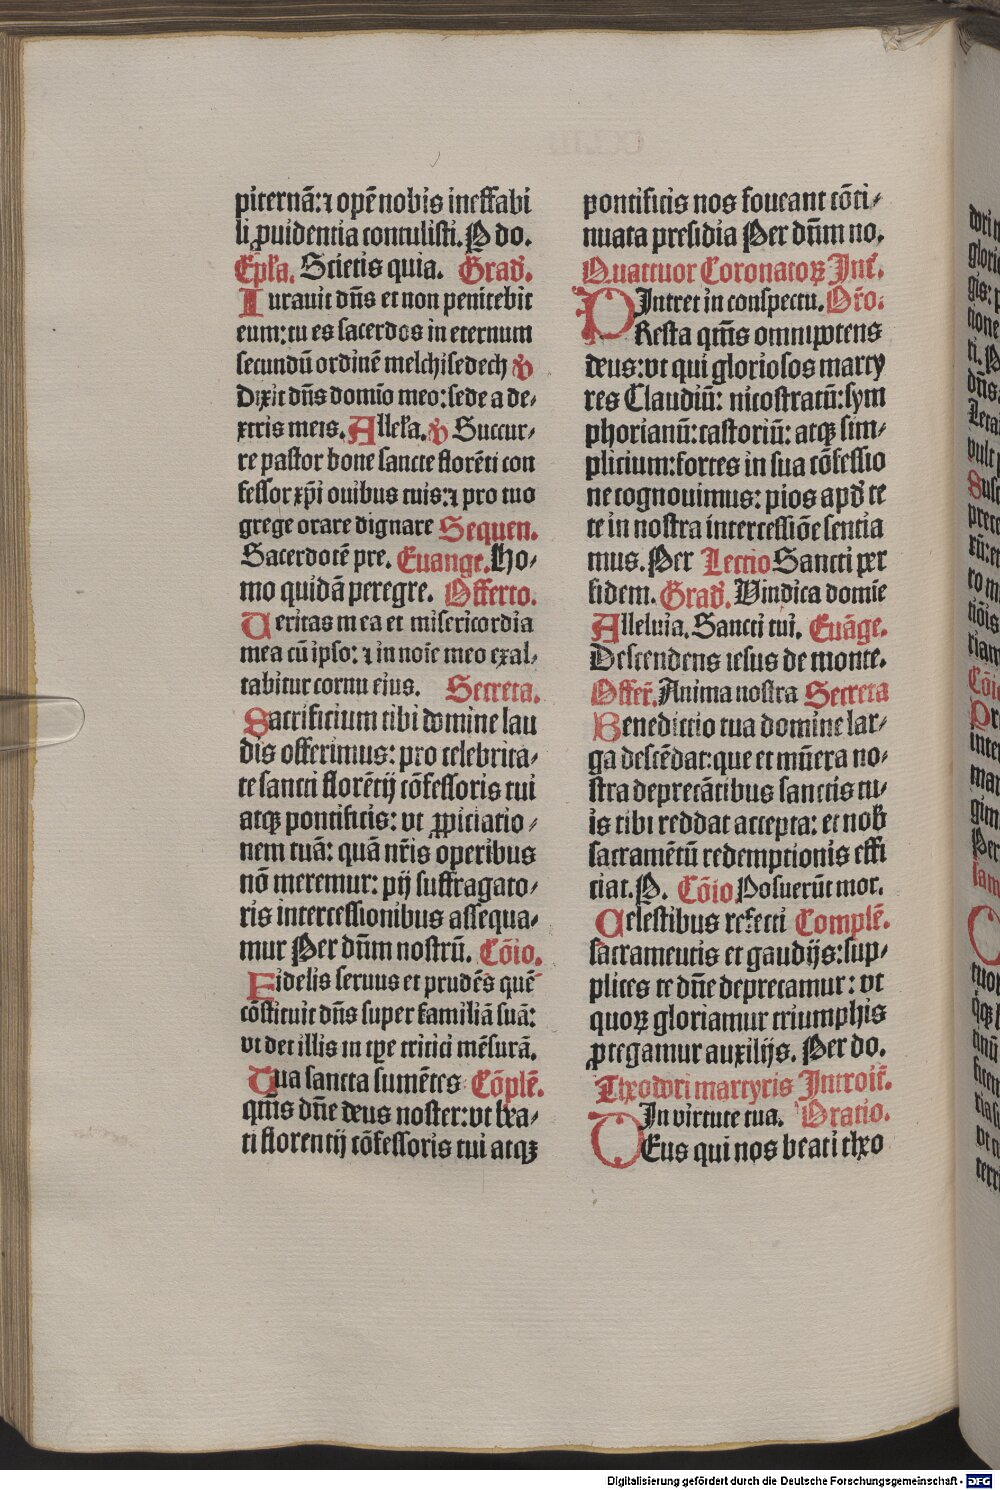 piternā: ⁊ opē nobis ineffabi
li ꝓuidentia contulisti. P do.
Ep̄la. Scietis quia. Grad.
Iurauit dn̄s et non penitebit
eum: tu es sacerdos in eternum
secundū ordinē melchisedech ℣
Dixit dn̄s domīo meo: sede a de⸗
xtris meis. Allel̄a. ℣ Succur⸗
re pastor bone sancte florēti con
fessor xp̄i ouibus tuis: ⁊ pro tuo
grege orare dignare Sequen.
Sacerdotē pre. Euange. Ho⸗
mo quidā peregre. Offerto.
Ueritas mea et misericordia
mea cū ipso: ⁊ in noīe meo exal⸗
tabitur cornu eius. Secreta.
Sacrificium tibi domine lau
dis offerimus: pro celebrita⸗
te sancti florētij cōfessoris tui
atqꝫ pontificis: vt ꝓpiciatio⸗
nem tuā: quā nr̄is operibus
nō meremur: pij suffragato⸗
ris intercessionibus assequa⸗
mur Per dn̄m nostrū. Cōio.
Fidelis seruus et prudēs quē
cōstituit dn̄s super familiā suā:
vt det illis in tp̄e tritici mēsurā.
Tua sancta sumētes Cōplē.
qm̄s dn̄e deus noster: vt bea⸗
ti florentij cōfessoris tui atqꝫ
pontificis nos foueant cōti⸗
nuata presidia Per dn̄m no.
Quattuor Coronatoꝝ Int̄.
INtret in conspectu. Or̄o.
PResta qm̄s omnip̄otens
deus: vt qui gloriosos marty
res Claudiū: nicostratū: sym
phorianū: castoriū: atqꝫ sim⸗
plicium: fortes in sua cōfessio
ne cognouimus: pios apd̄ te
te in nostra intercessiōe sentia
mus. Per Lectio Sancti per
fidem. Grad. Vindica domīe
Alleluia. Sancti tui. Euāge.
Descendens iesus de monte.
Offer̄. Anima nostra Secreta
Benedictio tua domine lar⸗
ga descēdat: que et mūera no⸗
stra deprecātibus sanctis tu⸗
is tibi reddat accepta: et nob̄
sacramētū redemptionis effi
ciat. P. Cōio Posuerūt mor.
Celestibus refecti Complē.
sacramentis et gaudijs: sup⸗
plices te dn̄e deprecamur: vt
quoꝝ gloriamur triumphis
ꝓtegamur auxilijs. Per do.
Theodori martyris Introit̄.
IN virtute tua. Oratio.
DEus qui nos beati theo
Digitalisierung gefördert durch die Deutsche Forschungsgemeinschaft - DFG